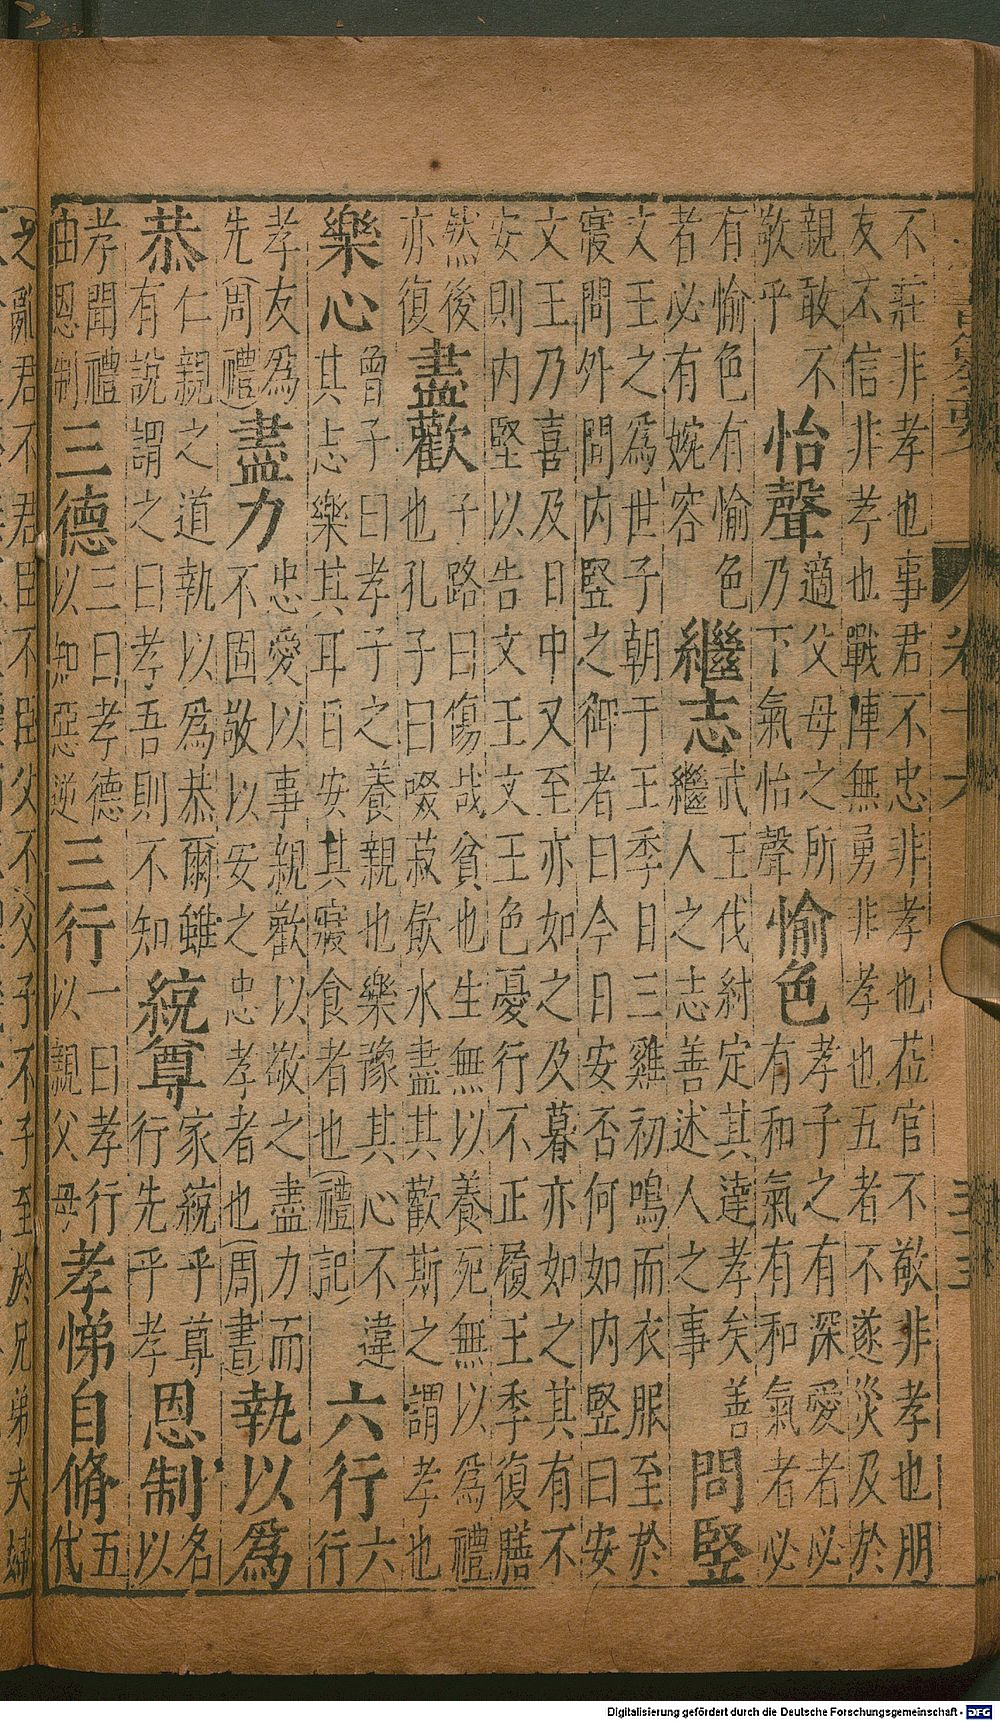 卷十六
不莊非孝也事君不忠非孝也莅官不敬非孝也朋
友不信非孝也戰陣無勇非孝也五者不遂災及於
親敢不
敬乎
怡聲
適父母之所
乃下氣怡聲
愉色
孝子之有深愛者必
有和氣有和氣者必
有愉色有愉色
者必有婉容
繼志
武王伐紂定其達孝矣善
繼人之志善述人之事
問竪
文王之爲世子朝于王季日三雞初鳴而衣服至於
寢問外間內竪之御者曰今日安否何如內竪曰安
文王乃喜及日中又至亦如之及暮亦如之其有不
安則內竪以告文王文王色憂行不正履王季復膳
然後
亦復
盡歡
子路曰傷哉貧也生無以養死無以爲禮
也孔子曰啜菽飲水盡其歡斯之謂孝也
樂心
曾子曰孝子之養親也樂豫其心不違
其志樂其耳目安其寢食者也(禮記)
六行
六
行
孝友爲
先(周禮)
盡力
忠愛以事親歡以敬之盡力而
不固敬以安之忠孝者也(周書
執以爲
恭
仁親之道執以爲恭爾雖
有說謂之曰孝吾則不知
統尊
家統乎尊
行先乎孝
恩制
名
以
孝聞禮
由恩制
三德
三曰孝德
以知惡逆
三行
一曰孝行
以親父母
孝悌自脩
五
代
之亂君不君臣不臣父不父子不子至於兄弟夫婦
Digitalisierung gefördert durch die Deutsche Forschungsgemeinschaft - DFG